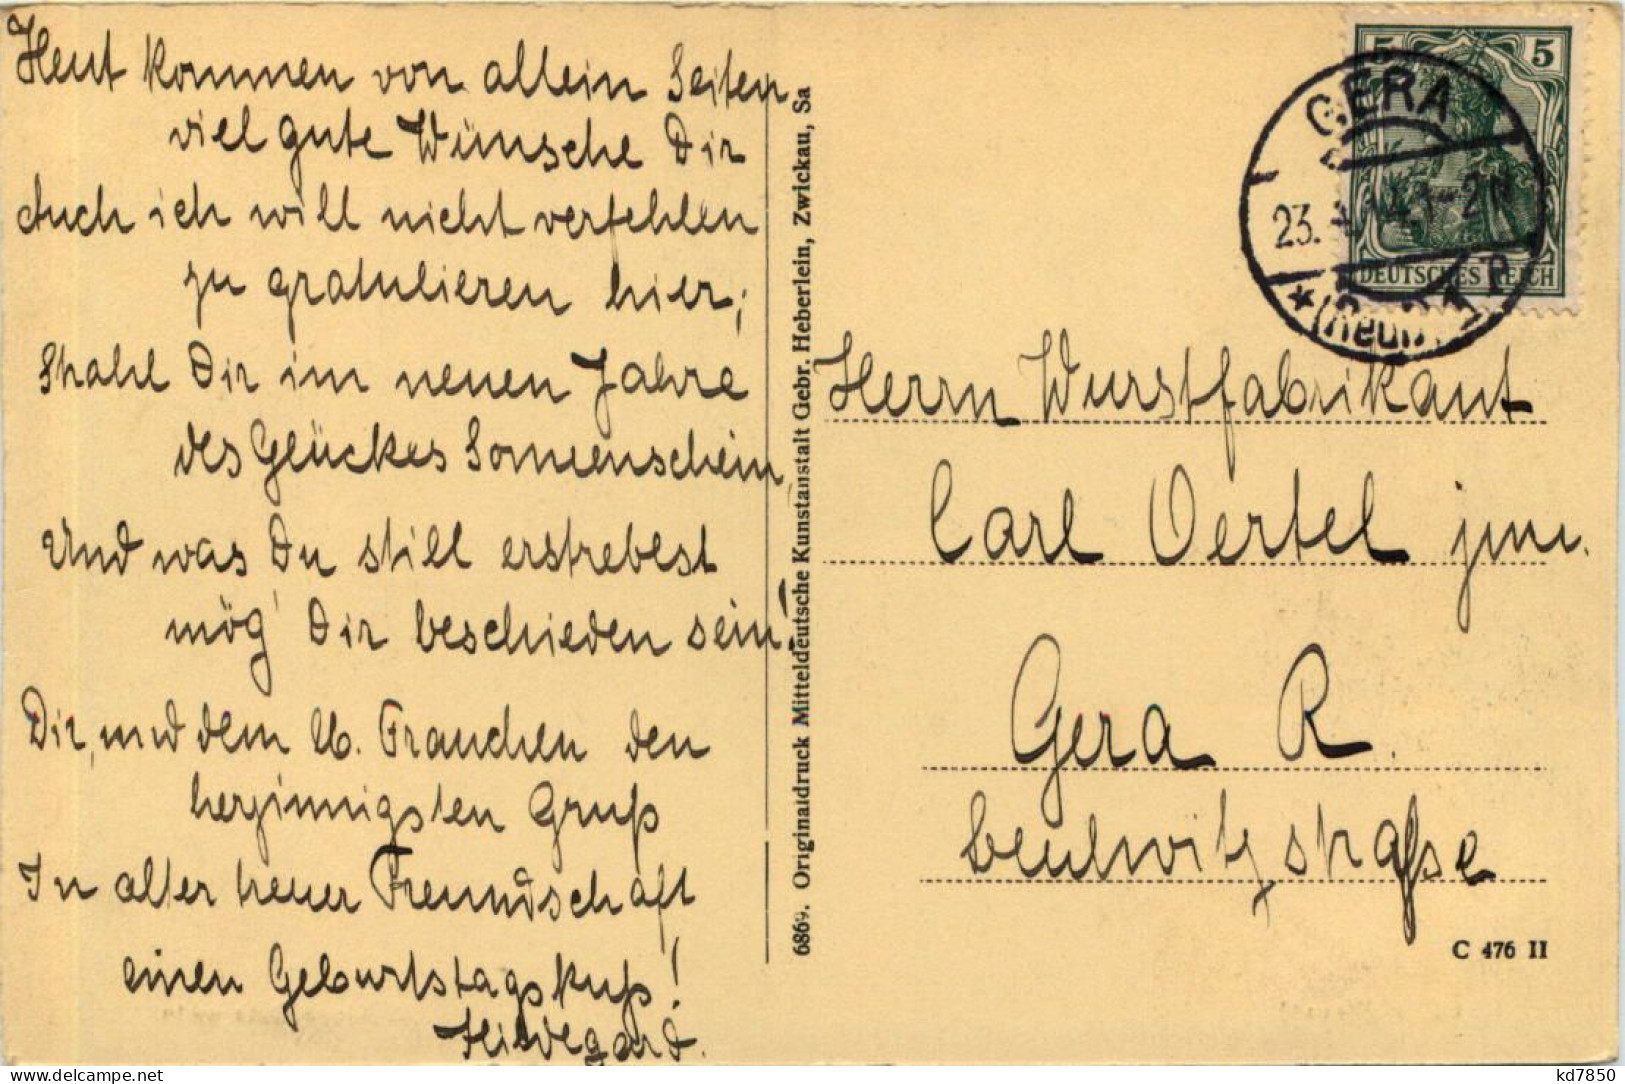 Heut kommen von allein Seiten
viel gute Wünsche Dir
Auch ich will nicht verfehlen
zu gratulieren hier;
Strahl Dir im neuen Jahre
des Glückes Sonnenschein,
Und was Du still erstrebest
mög' Dir beschieden sein!
Dir, und dem lb. Frauchen den
herzinnigsten Gruß
In alter treuer Freundschaft
einen Geburtstagskuß!
Hildegard.
6869. Originaldruck Mitteldeutsche Kunstanstalt Gebr. Heberlein, Zwickau, Sa
5 5
DEUTSCHES REICH
GERA
23. 14. 1-2 N
* (Reuß)
Herrn Wurstfabrikant
Carl Oertel jun.
Gera R.
Leulwitzstraße
C 476 II
kd7850